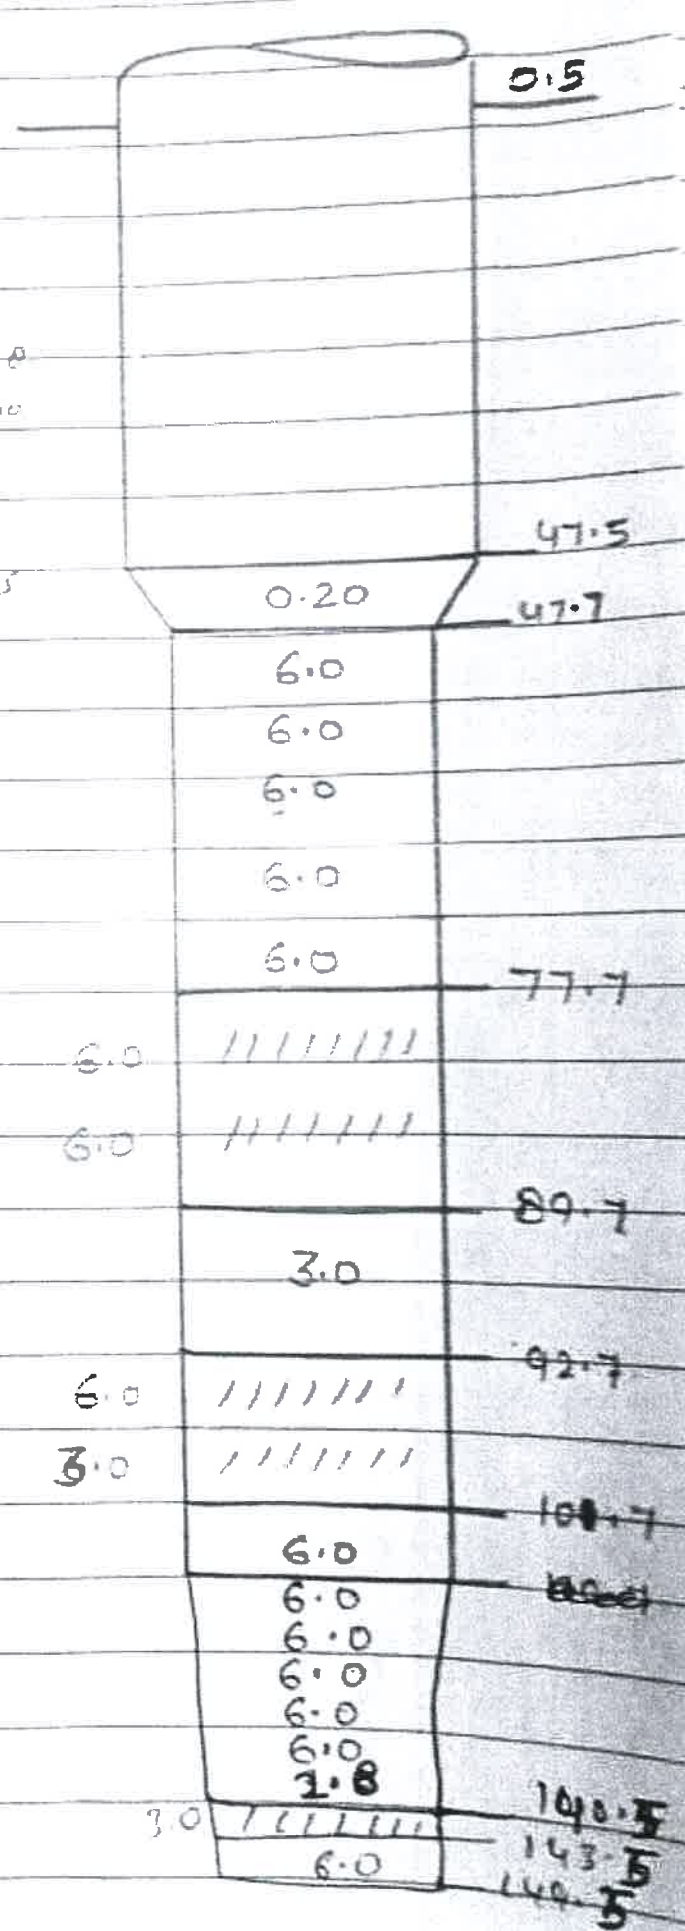 0.5
47.5
0.20
47.7
6.0
6.0
6.0
6.0
6.0
77.7
6.0
6.0
89.7
3.0
92.7
6.0
3.0
101.7
6.0
6.0
6.0
6.0
6.0
6.0
140.5
3.0
143.5
6.0
149.5